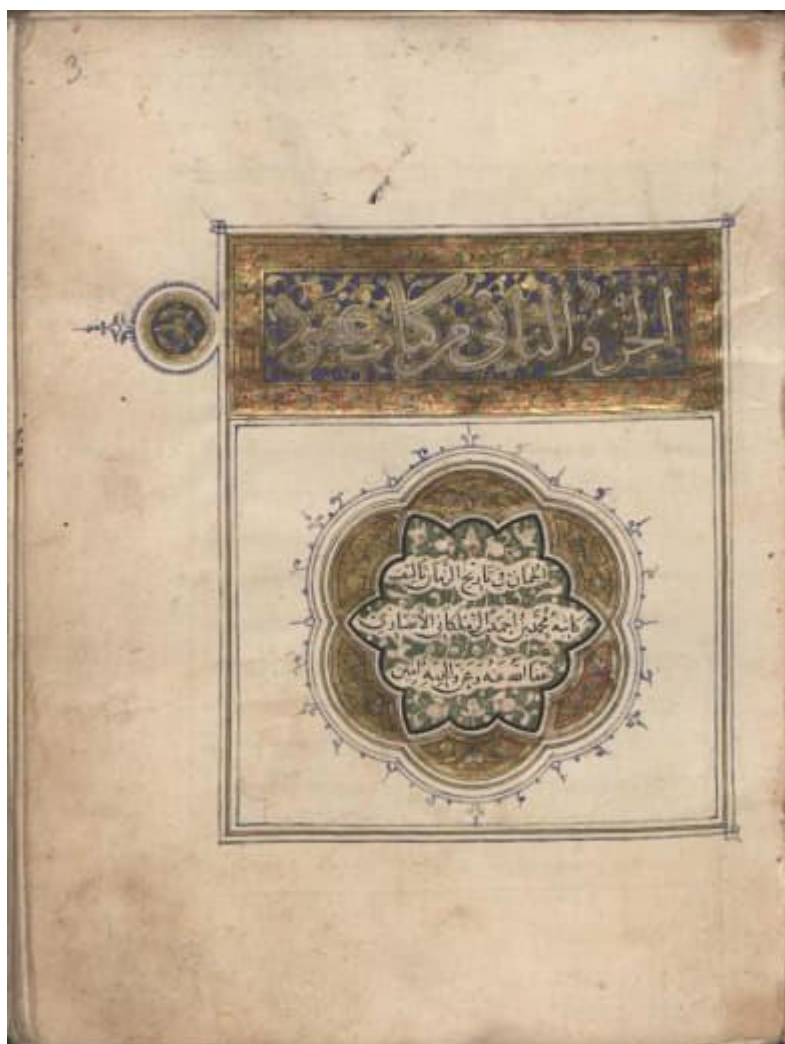 3
الجزو الثاني من كتاب عقود
الجمان في تاريخ الزمان تاليف
كاتبه محمد بن احمد الانصاري
عفا الله عنه وعن والديه امين